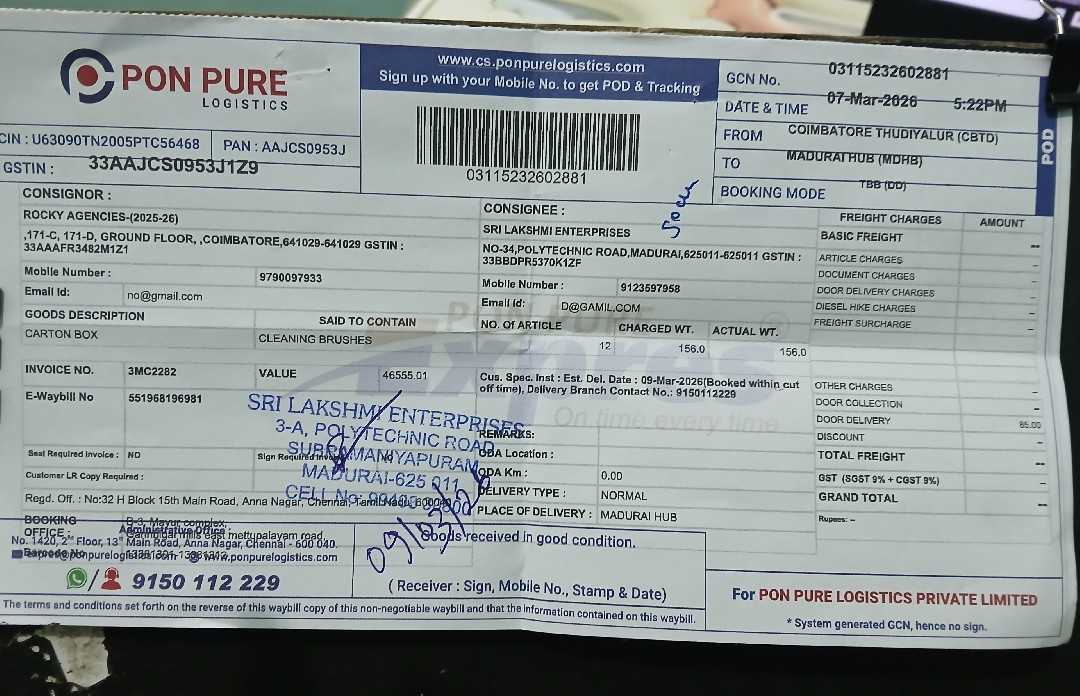 PON PURE
LOGISTICS
CIN : U63090TN2005PTC56468
PAN : AAJCS0953J
GSTIN : 33AAJCS0953J1Z9
www.cs.ponpurelogistics.com
Sign up with your Mobile No. to get POD & Tracking
03115232602881
GCN No. 03115232602881
DATE & TIME 07-Mar-2026 5:22PM
FROM COIMBATORE THUDIYALUR (CBTD)
TO MADURAI HUB (MDHB)
BOOKING MODE TBB (DD)
POD
CONSIGNOR :
ROCKY AGENCIES-(2025-26)
,171-C, 171-D, GROUND FLOOR, ,COIMBATORE,641029-641029 GSTIN :
33AAAFR3482M1Z1
Mobile Number : 9790097933
Email Id: no@gmail.com
CONSIGNEE :
SRI LAKSHMI ENTERPRISES
NO-34,POLYTECHNIC ROAD,MADURAI,625011-625011 GSTIN :
33BBDPR5370K1ZF
Mobile Number : 9123597958
Email Id: D@GAMIL.COM
GOODS DESCRIPTION SAID TO CONTAIN
CARTON BOX CLEANING BRUSHES
NO. Of ARTICLE CHARGED WT. ACTUAL WT.
12 156.0 156.0
INVOICE NO. 3MC2282 VALUE 46555.01
E-Waybill No 551968196981
Cus. Spec. Inst : Est. Del. Date : 09-Mar-2026(Booked within cut
off time), Delivery Branch Contact No.: 9150112229
PON PURE
Expres
On time every time
SRI LAKSHMI ENTERPRISES
3-A, POLYTECHNIC ROAD
SUBRAMANIYAPURAM
MADURAI-625 011
CELL No:
09/03/26
REMARKS:
ODA Location :
ODA Km : 0.00
DELIVERY TYPE : NORMAL
PLACE OF DELIVERY : MADURAI HUB
Seal Required Invoice : NO
Sign Required Invoice
Customer LR Copy Required :
Regd. Off. : No:32 H Block 15th Main Road, Anna Nagar, Chennai, Tamil Nadu,600040
BOOKING
OFFICE :
B-3, Mayur complex,
Administrative Office :
No. 1420, 2nd Floor, 13th Main Road, Anna Nagar, Chennai - 600 040.
www.ponpurelogistics.com
9150 112 229
Goods received in good condition.
( Receiver : Sign, Mobile No., Stamp & Date)
The terms and conditions set forth on the reverse of this waybill copy of this non-negotiable waybill and that the information contained on this waybill.
FREIGHT CHARGES AMOUNT
BASIC FREIGHT --
ARTICLE CHARGES --
DOCUMENT CHARGES --
DOOR DELIVERY CHARGES --
DIESEL HIKE CHARGES --
FREIGHT SURCHARGE --
OTHER CHARGES --
DOOR COLLECTION --
DOOR DELIVERY 85.00
DISCOUNT --
TOTAL FREIGHT --
GST (SGST 9% + CGST 9%) --
GRAND TOTAL --
Rupees: --
For PON PURE LOGISTICS PRIVATE LIMITED
* System generated GCN, hence no sign.